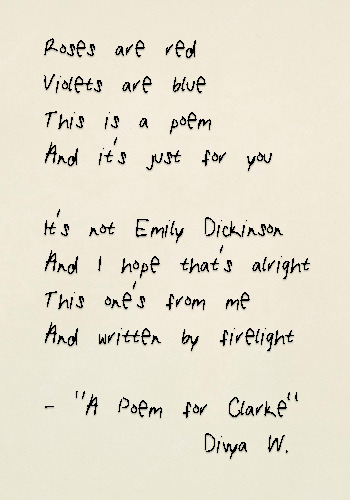 Roses are red
Violets are blue
This is a poem
And it's just for you

It's not Emily Dickinson
And I hope that's alright
This one's from me
And written by firelight

- "A Poem for Clarke"
Divya W.